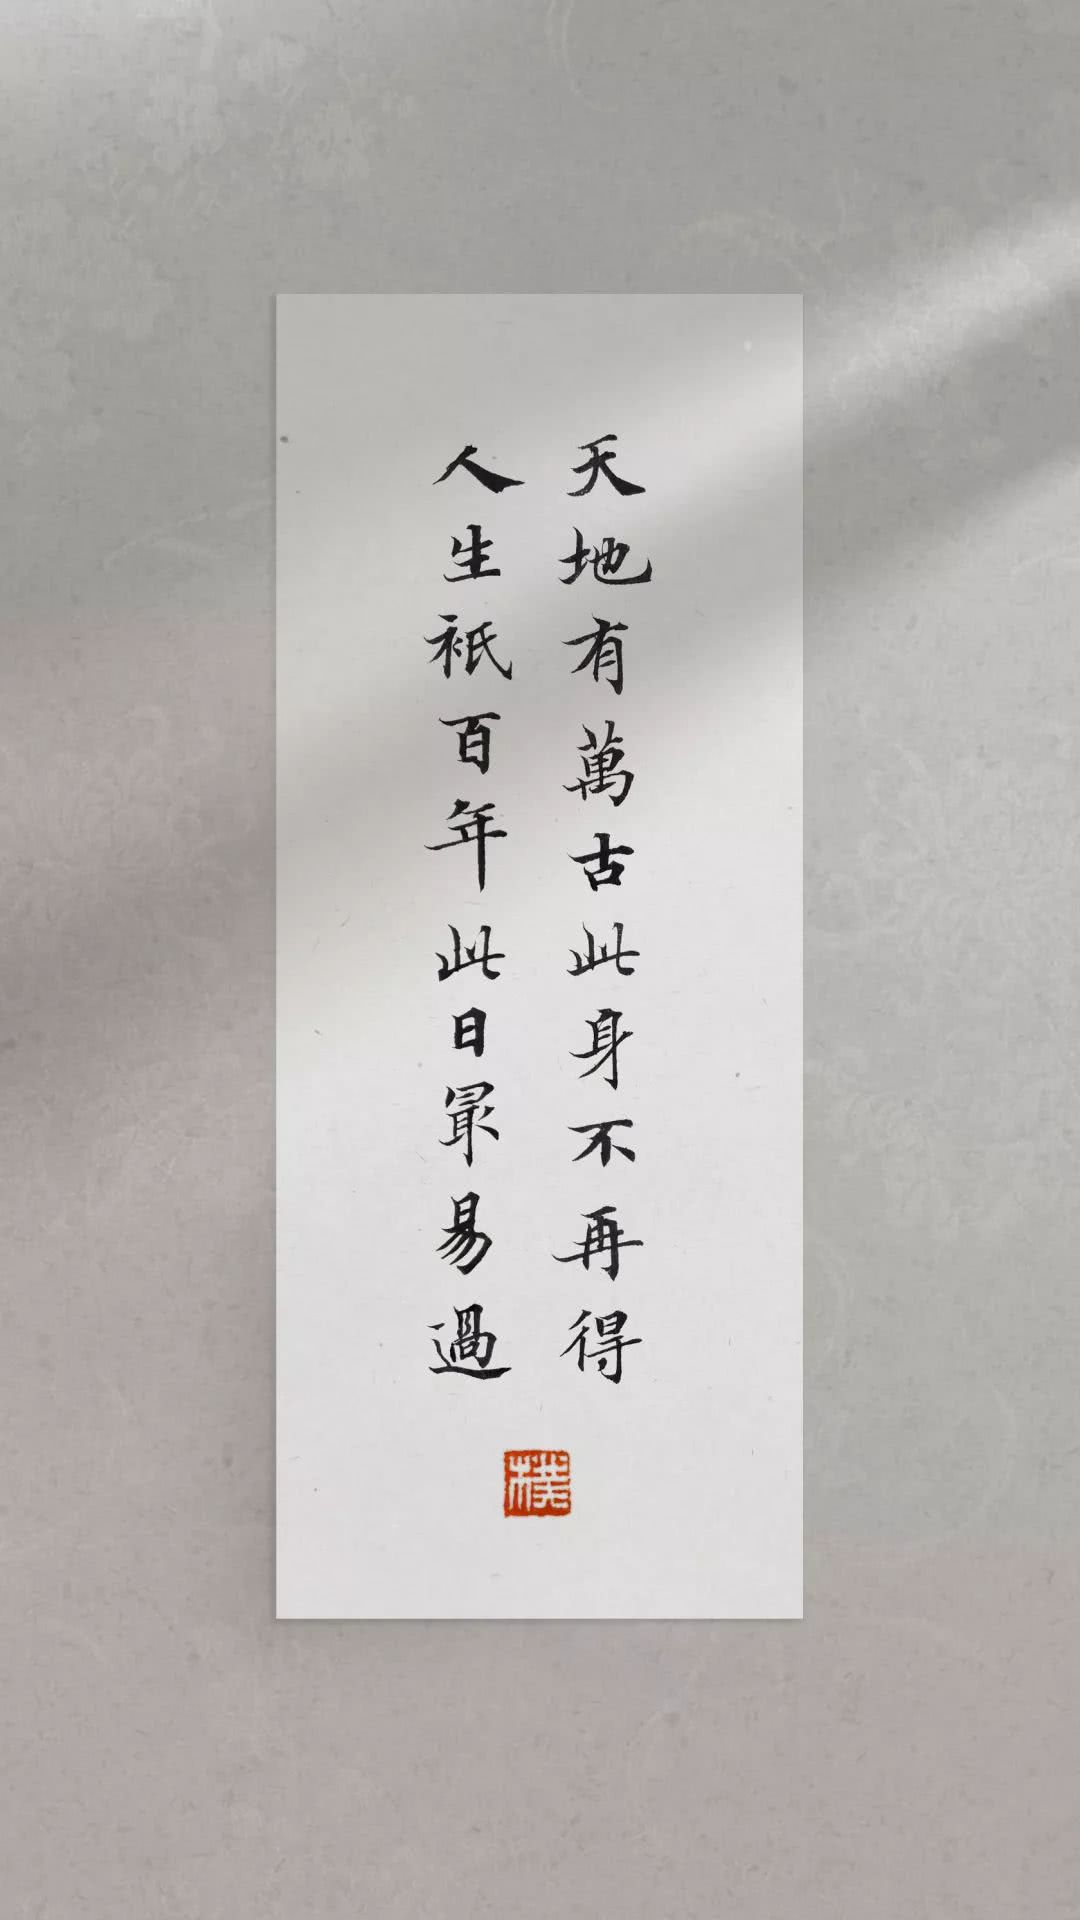 天地有萬古此身不再得
人生衹百年此日最易過
樸